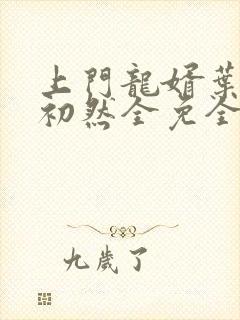 上門龍婿葉
初然全免全
九歲了